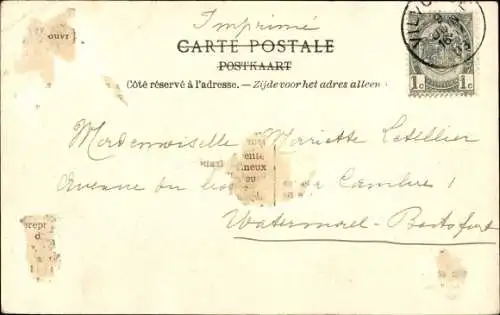 Imprimé
CARTE POSTALE
POSTKAART
Côté réservé à l'adresse. — Zijde voor het adres alleen
1c 1c
ouvr
Mademoiselle Mariette Letellier
Avenue du de Cambre 1
Watermael-Boitsfort
ente
ineux
eu
cept
d